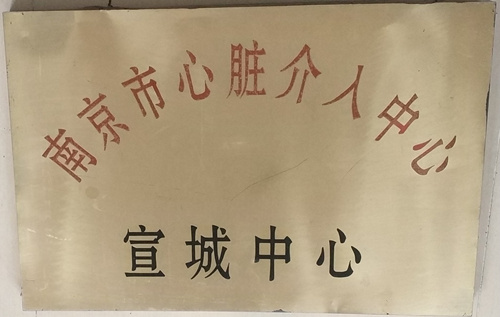 南京市心脏介入中心
宣城中心